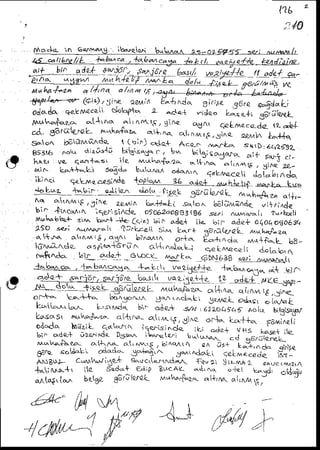 176
2
210
Made in Germany ibareleri bulunan 25-025755 seri numaralı
45 calibrelik tabanca, tabancaya takılı vaziyette, kendisine
ait bir adet şarjör, şarjöre basılı vaziyette 11 adet ça-
pına uygun muhtelif marka dolu fişek görülmüş ve
muhafaza altına alınmış, aynı binanın orta katında
(Gİ6), yine zemin katında girişe göre sağdaki
odada çekmeceli dolapta 2 adet video kaseti görülerek
muhafaza altına alınmış, yine aynı çekmecede 12 adet
cd görülerek muhafaza altına alınmış, yine zemin katta
salon bölümünde 1 (bir) adet Acer marka
nolu dizüstü bilgisayar, bu bilgisayara ait şarj ci-
hazı ve çantası ile muhafaza altına alınmış, yine ze-
min kattaki sağda bulunan odanın çekmeceli dolabında
ikinci çekmecesinde toplam 36 adet muhtelif marka
tabir edilen dolu fişek görülerek muhafaza altı-
na alınmış, yine zemin kattaki salon bölümünde vitrinde
bir fincanın içerisinde seri numaralı Turkcell
muhabbet sim kart ile (bir) bir adet ile bir adet
250 seri numaralı Türkcell sim kart görülerek muhafaza
altına alınmış, aynı binanın orta katında mutfak bö-
lümünde aspiratörün altındaki çekmeceli dolabın
rafında bir adet GLOCK marka seri numaralı
tabanca, tabancaya takılı vaziyette tabancaya ait bir
adet şarjör, şarjöre basılı vaziyette 12 adet MKE yapı-
mı dolu fişek görülerek muhafaza altına alınmış, yine
orta katta salonun yanındaki yemek odası olarak
kullanılan kısımda bir adet nolu bilgisayar
kasası muhafaza altına alınmış, yine orta katta şömineli
odada müzik çaların içerisinde iki adet VHS kaset ile
bir adet üzerinde ibareleri bulunan cd görülerek
muhafaza altına alınmış, binanın en üst katında girişe
göre soldaki odada yatağın yanındaki çekmecede İST-
ANBUL Cumhuriyet Savcılarından
talimatı ile Sedat Edip BUCAK adına otel kaydı olduğu
anlaşılan belge görülerek muhafaza altına alınmış,